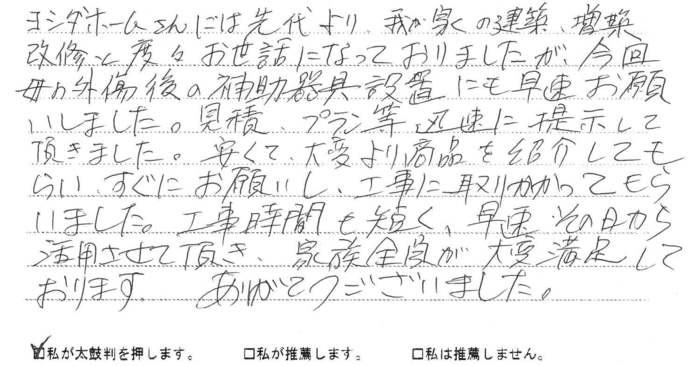 ヨシダホームさんには先代より、我が家の建築、増築
改修と度々お世話になっておりましたが、今回
母の外傷後の補助器具設置にも早速お願
いしました。見積 プラン等迅速に提示して
頂きました。安くて、大変より商品を紹介しても
らい、すぐにお願いし、工事に取りかかってもら
いました。工事時間も短く、早速その日から
活用させて頂き、家族全員が大変満足して
おります。 ありがとうございました。
☑私が太鼓判を押します。 □私が推薦します。 □私は推薦しません。